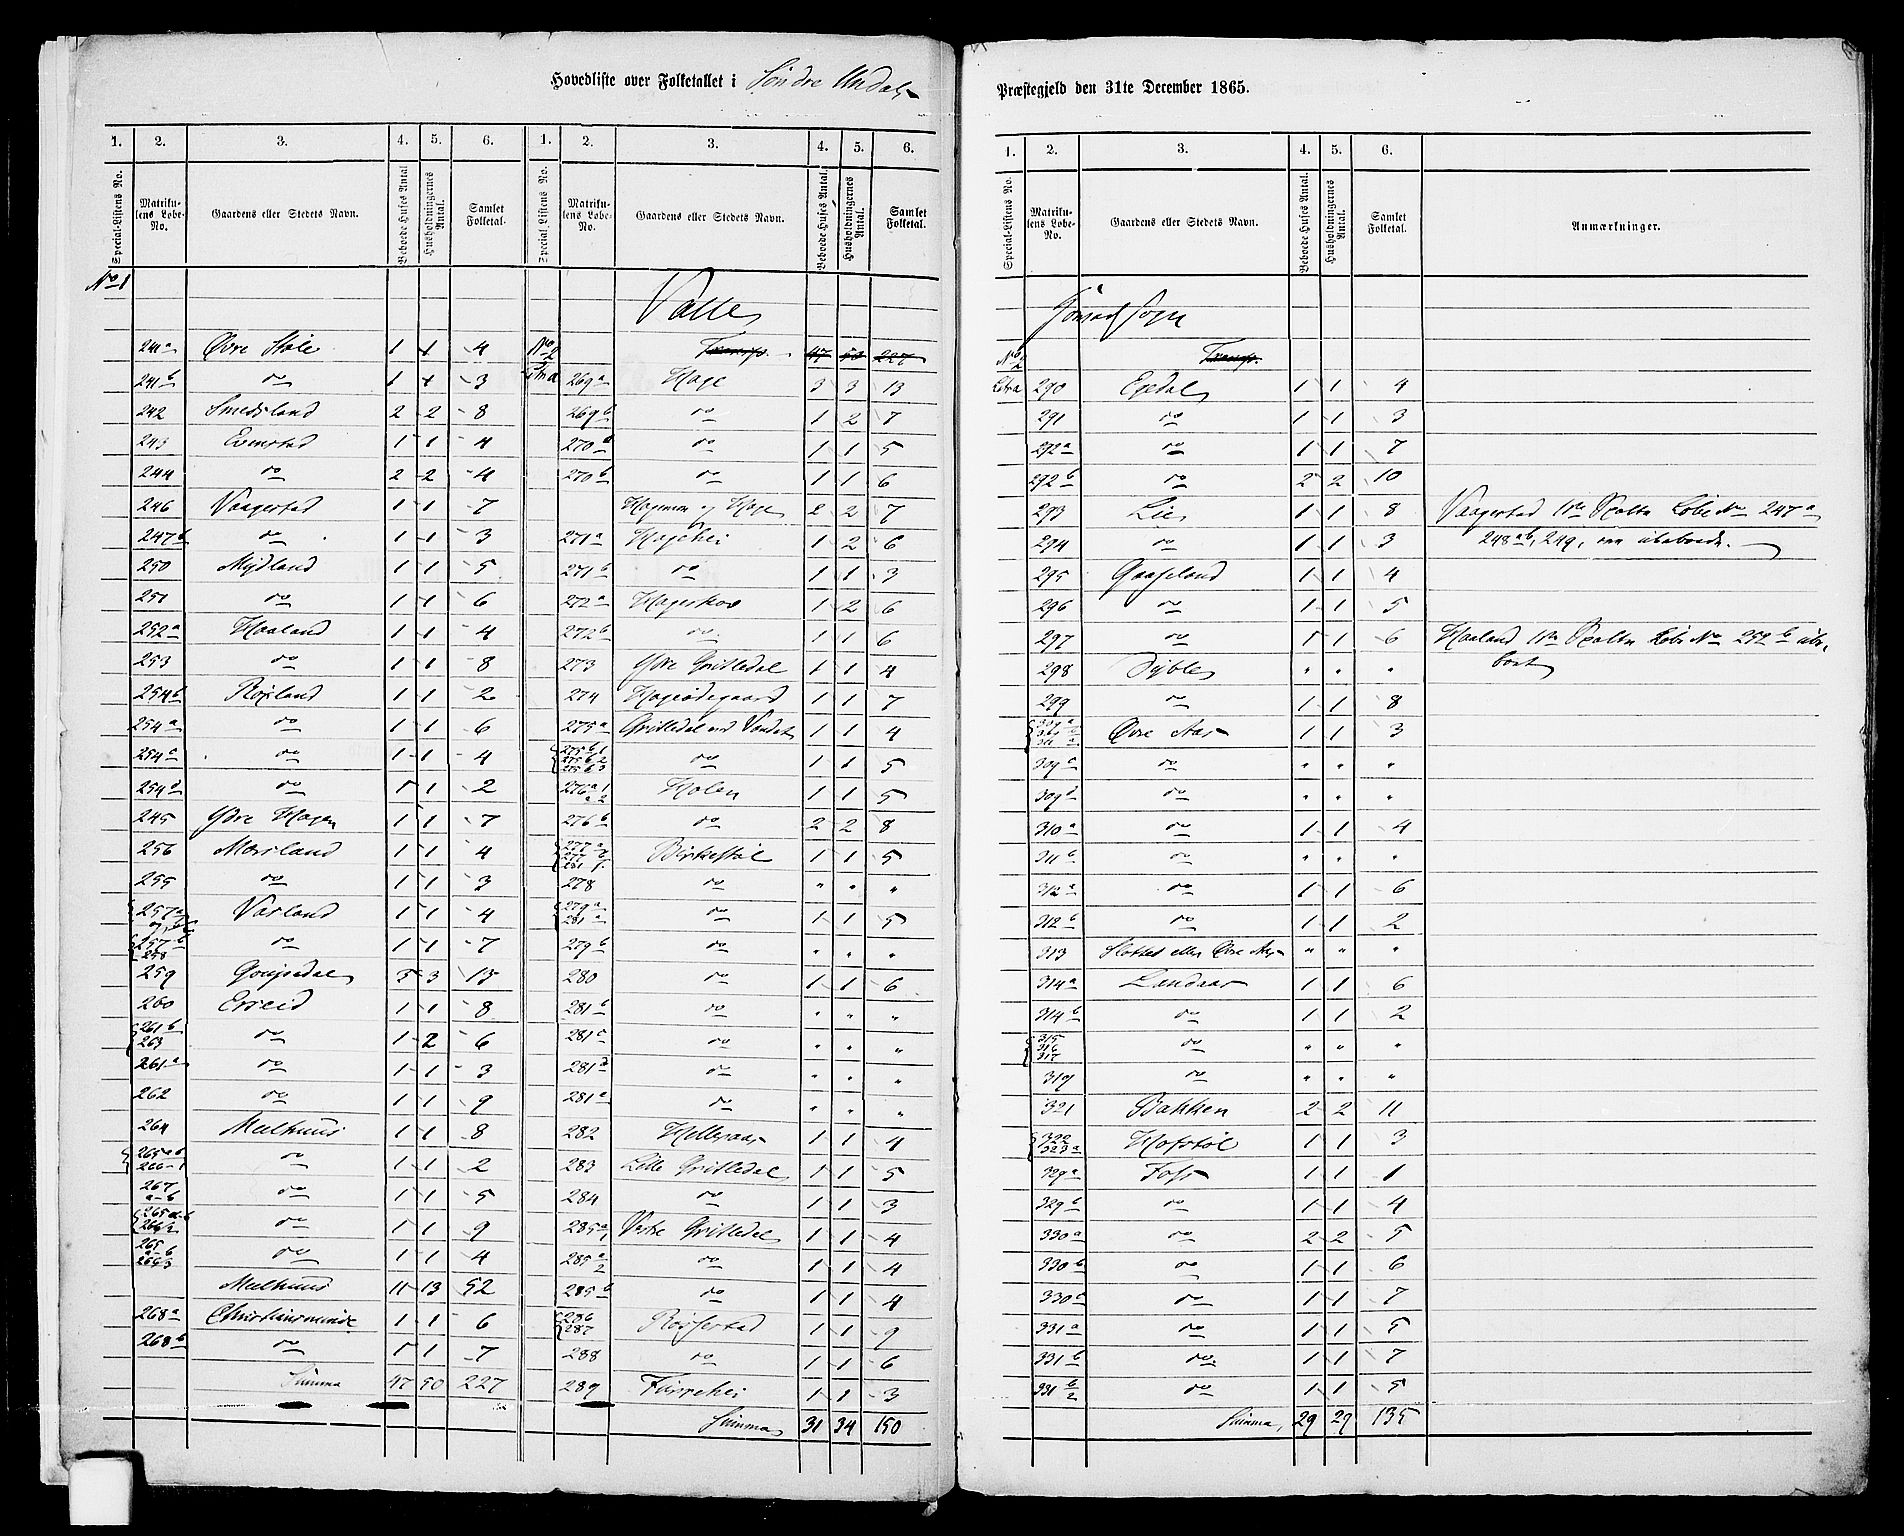 Hovedliste over Folketallet i Søndre Undals
Præstegjeld den 31te December 1865.
1. 2. 3. 4. 5. 6. 1. 2. 3. 4. 5. 6.
Special-Listens No. Matrikulens Lobe-No. Gaardens eller Stedets Navn. Beboede Huses Antal Husholdningernes Antal. Samlet Folketal. Special-Listens No. Matrikulens Lobe-No. Gaardens eller Stedets Navn. Beboede Huses Antal. Husholdningernes Antal. Samlet Folketal.
No 1
241a Øvre Stole 1 1 4
241b do 1 1 3
242 Smedsland 2 2 8
243 Evenstad 1 1 4
244 do 2 2 4
246 Vaagestad 1 1 7
247b do 1 1 3
250 Mydland 1 1 5
251 do 1 1 6
252a Haaland 1 1 4
253 do 1 1 8
254b Røisland 1 1 2
254a do 1 1 6
254c do 1 1 4
254d do 1 1 2
245 Ydre Hagen 1 1 7
256 Mæsland 1 1 4
255 do 1 1 3
257a Vasland 1 1 4
257b 258 do 1 1 7
259 3 3 15
260 Erseid 1 1 8
261b 263 do 1 2 6
261a do 1 1 3
262 do 1 1 9
264 Mælhuus 1 1 8
do 1 1 2
267 a-b do 1 1 5
do 1 1 9
do 1 1 4
Mælhuus 11 13 52
268a Christiansminde 1 1 6
268b do 1 1 7
Summa 47 50 227
Valle
No 2 Transp. 47 50 227
Litra a 269a Hage 3 3 13
269b do 1 2 7
270a do 1 1 5
270b do 1 1 6
Hagemoen og Hage 2 2 7
271a Hagehei 1 2 6
271b do 1 1 3
272a Hageskov 1 2 6
272b do 1 1 6
273 Ydre Gvitledal 1 1 4
274 Hageødegaard 1 1 7
275a Gvitledal ved Vandet 1 1 4
275b1 275b2 275b3 do 1 1 5
276a1 a2 Holen 1 1 5
276b do 2 2 8
Birkestøl 1 1 5
278 do " " "
279a 281a do 1 1 5
279b do " " "
280 do 1 1 6
281b do " " "
281c do " " "
281d do " " "
281 do " " "
282 Hellesaas 1 1 4
283 Lille Gvitledal 1 1 5
284 do 1 1 3
285a1 Vestre Gvitledal 1 1 4
285a2 do 1 1 4
285b do 1 1 4
286 287 Røisestad 1 1 9
288 do 1 1 6
289 Furrehei 1 1 3
Summa 31 34 150
1. 2. 3. 4. 5. 6.
Special-Listens No. Matrikulens Lobe-No. Gaardens eller Stedets Navn. Beboede Huses Antal. Husholdningernes Antal. Samlet Folketal. Anmærkninger.
Sogn
No 2 Transp.
Litra 290 Egedal 1 1 4
291 do 1 1 3
292a do 1 1 7
292b do 2 2 10
293 Lie 1 1 8 Vaagestad 1ste Spalte Løbe No 247a
294 do 1 1 3 248ab, 249, ere ubeboede.
295 Gaaseland 1 1 4
296 do 1 1 5
297 do 1 1 6 Haaland 1ste Spalte Løbe No 252b ube-
298 Dyble " " " boet
299 do 1 1 8
Øvre Aas 1 1 3
309c do " " "
309d do " " "
310a do 1 1 4
311b do " " "
312a do 1 1 6
312b do 1 1 2
313 Slottet eller Øvre Aas " " "
314a Landaas 1 1 6
314b do 1 1 2
315 316 317 do " " "
319 do " " "
321 Bakken 2 2 11
322 323a Hofstøl 1 1 3
329a Foss 1 1 1
329b do 1 1 4
330a do 2 2 5
330b do 1 1 6
330c do 1 1 7
331a do 1 1 5
331b do 1 1 7
331b/2 do 1 1 5
Summa, 29 29 135